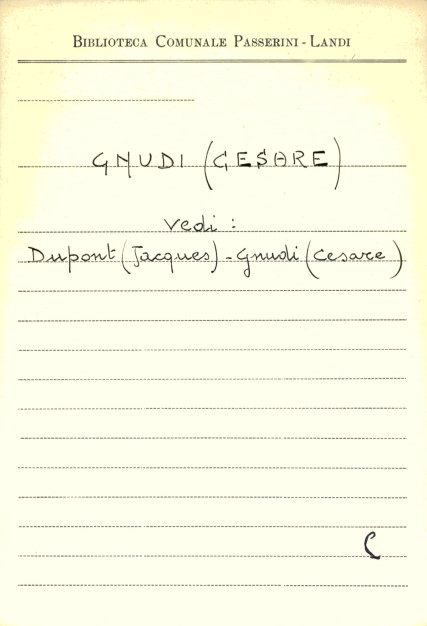 BIBLIOTECA COMUNALE PASSERINI - LANDI
GNUDI (CESARE)
Vedi :
Dupont (Jacques) - Gnudi (Cesare)
C